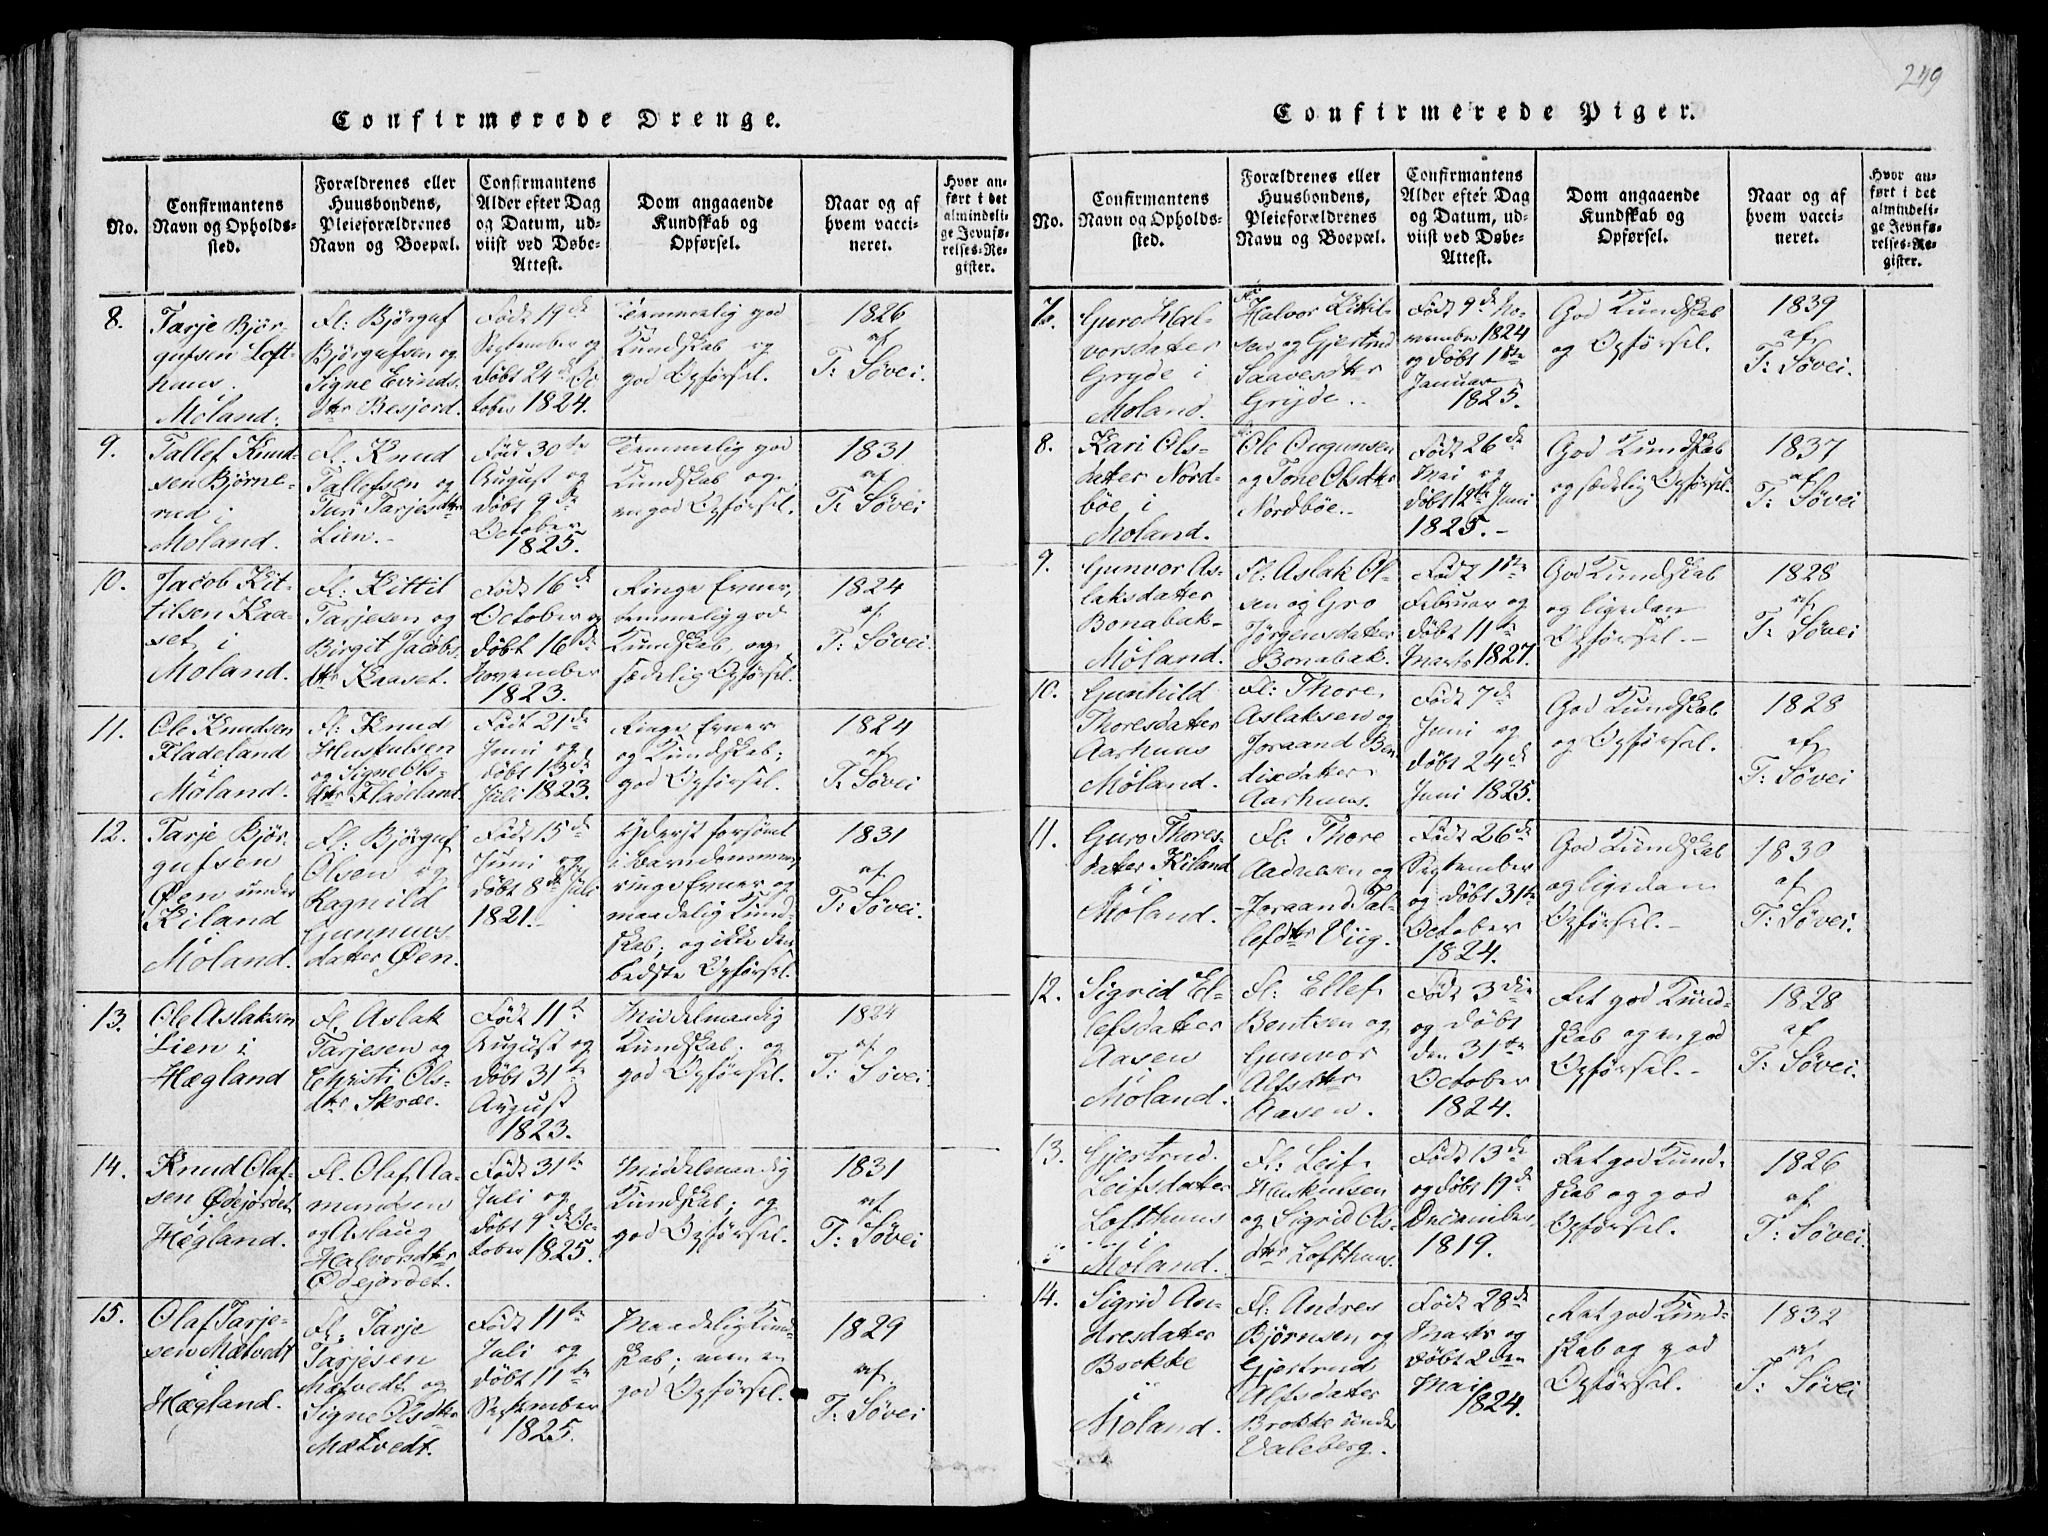 249
Confirmerede Drenge.
No.
Confirmantens
Navn og Opholds-
sted.
Forældrenes eller
Huusbondens,
Pleieforældrenes
Navn og Boepæl.
Confirmantens
Alder efter Dag
og Datum, ud-
viist ved Døbe-
Attest.
Dom angaaende
Kundskab og
Opførsel.
Naar og af
hvem vacci-
neret.
Hvor an-
ført i det
almindeli-
ge Jevnfø-
relses-Re-
gister.
8.
Tarje Bjør-
gufsen Loft-
huus.
Moland.
Fl: Bjørguf
Bjørgufsen og
Signe Evinds-
dtr Besjord.
Født 19de
September og
døbt 24de Oc-
tober 1824.
Temmelig god
Kundskab og
god Opførsel.
1826
af
T: Søvei.
9.
Tallef Knud-
sen Bjørne-
rud i
Moland.
Fl. Knud
Tallefsen og
Turi Tarjesdtr
Lien.-
Fød 30te
August og
døbt 9de
October
1825.
Temmelig god
Kundskab og
en god Opførsel.
1831
af
T: Søvei
10.
Jacob Kit-
tilsen Kaa-
set i
Moland.
Fl: Kittil
Tarjesen og
Birgit Jacobs-
dtr Kaaset.
Født 16de
October og
døbt 16de
November
1823.
Ringe Evner,
temmelig god
Kundskab, og
sædelig Opførsel.
1824
af
T: Søvei.
11.
Ole Knudsen
Fladeland
i
Moland.
Fl: Knud
Huskulsen
og Signe Ols-
dtr Fladeland.
Født 21de
Juni og
døbt 13de
Juli 1823.
Ringe Evner
og Kundskab;
god Opførsel.
1824
af
T: Søvei
12.
Tarje Bjør-
gufsen
Øen under
Kiland
Moland.
Fl: Bjørguf
Olsen og
Ragnild
Gunnuvs-
datter Øen.
Født 15de
Juni og
døbt 8de Juli
1821.-
Yderst forsømt
i Barndommen,
ringe Evner og
maadelig Kund-
skab; og ikke den
bedste Opførsel.
1831
af
T: Søvei.
13.
Ole Aslaksen
Lien i
Hægland
Fl. Aslak
Tarjesen og
Christi Ols-
dtr Skræe.
Født 11te
August og
døbt 31te
August
1823.
Middelmaadig
Kundskab. og
god Opførsel.
1824
af
T: Søvei.
14.
Knud Olaf-
sen Ødejordet
i
Hægland.
Fl. Olaf Aa-
mundsen
og Aslaug
Halvorsdtr
Ødejordet.
Født 31te
Juli og
døbt 9de Oc-
tober 1825.
Middelmaadig
Kundskab; og
god Opførsel.
1831
af
T: Søvei
15.
Olaf Tarje-
sen Mætvedt
i
Hægland.
Fl: Tarje
Tarjesen
Mætvedt og
Signe Olsdtr
Mætvedt.
Født 11te
Juli og
døbt 11te
September
1825.
Maadelig Kund-
skab; men en
god Opførsel.
1829
af
T: Søvei
Confirmerede Piger.
No.
Confirmantens
Navn og Opholds-
sted.
Forældrenes eller
Huusbondens,
Pleieforældrenes
Navn og Boepæl.
Confirmantens
Alder efter Dag
og Datum, ud-
viist ved Døbe-
Attest.
Dom angaaende
Kundskab og
Opførsel.
Naar og af
hvem vacci-
neret.
Hvor an-
ført i det
almindeli-
ge Jevnfø-
relses-Re-
gister.
7.
Guro Hal-
vorsdatter
Gryde i
Moland.
Fl:
Halvor Kittil-
sen og Gjertrud
Saavesdtr
Gryde..
Født 9de No-
vember 1824
og døbt 1ste
Januar
1825.
God Kundskab
og Opførsel.
1839
af
T: Søvei.
8.
Kari Ols-
datter Nord-
bøe i
Moland.
Ole Ougunsen
og Tone Olsdtr
Nordbøe.-
Født 26de
Mai og
døbt 12te Juni
1825.-
God Kundskab
og sædelig Opførsel.
1837
af
T: Søvei
9.
Gunvor As-
laksdatter
Bonabak-
Moland.
Fl: Aslak Ol-
sen og Gro
Jørgensdatter
Bonabak.
Født 1ste
Februar og
døbt 11te
Marts 1827.
God Kundskab
og ligedan
Opførsel.-
1828
af
T: Søvei
10.
Gunhild
Thoresdatter
Aarhuus
Moland.
Fl: Thore
Aslaksen og
Joraand Ben-
dixdatter
Aarhuus.
Født 7de
Juni og
døbt 24de
Juni 1825.
God Kundskab
og Opførsel.
1828
af
T: Søvei
11.
Guro Thores-
datter Kiland
i
Moland.
Fl. Thore
Aadnesen og
Joraand Tal-
lefdtr Viig.
Født 26de
September
og døbt 31te
October
1824.
God Kundskab
og ligedan
Opførsel.-
1830
af
T: Søvei.
12.
Sigrid El-
lefsdatter
Aasen
Moland.
Fl: Ellef
Bentsen og
Gunvor
Alfsdtr
Aasen.
Født 3die
og døbt
den 31te
October
1824.
Ret god Kund-
skab og en god
Opførsel.-
1828
af
T: Søvei.
13.
Gjertrud
Leifsdatter
Lofthuus
i
Moland.
Fl: Leif
Huskulsen
og Sigrid As-
dtr Lofthuus.
Født 13de
og døbt 19de
December
1819.
Ret god Kund-
skab og god
Opførsel.
1826
af
T: Søvei.
14.
Sigrid An-
dresdatter
Brokke
i
Moland.
Fl: Andres
Bjørnsen og
Gjertrud
Alfsdatter
Brokke under
Valeberg.
Født 28de
Marts og
døbt 2den
Mai
1824.
Ret god Kund-
skab og god
Opførsel.
1832
af
T: Søvei